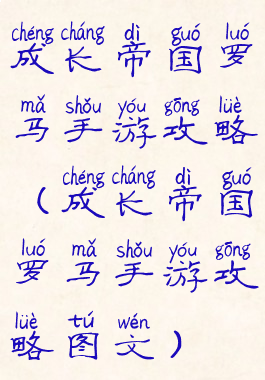 chéng cháng dì guó luó
成长帝国罗
mǎ shǒu yóu gōng lüè
马手游攻略
chéng cháng dì guó
（成长帝国
luó mǎ shǒu yóu gōng
罗马手游攻
lüè tú wén
略图文）